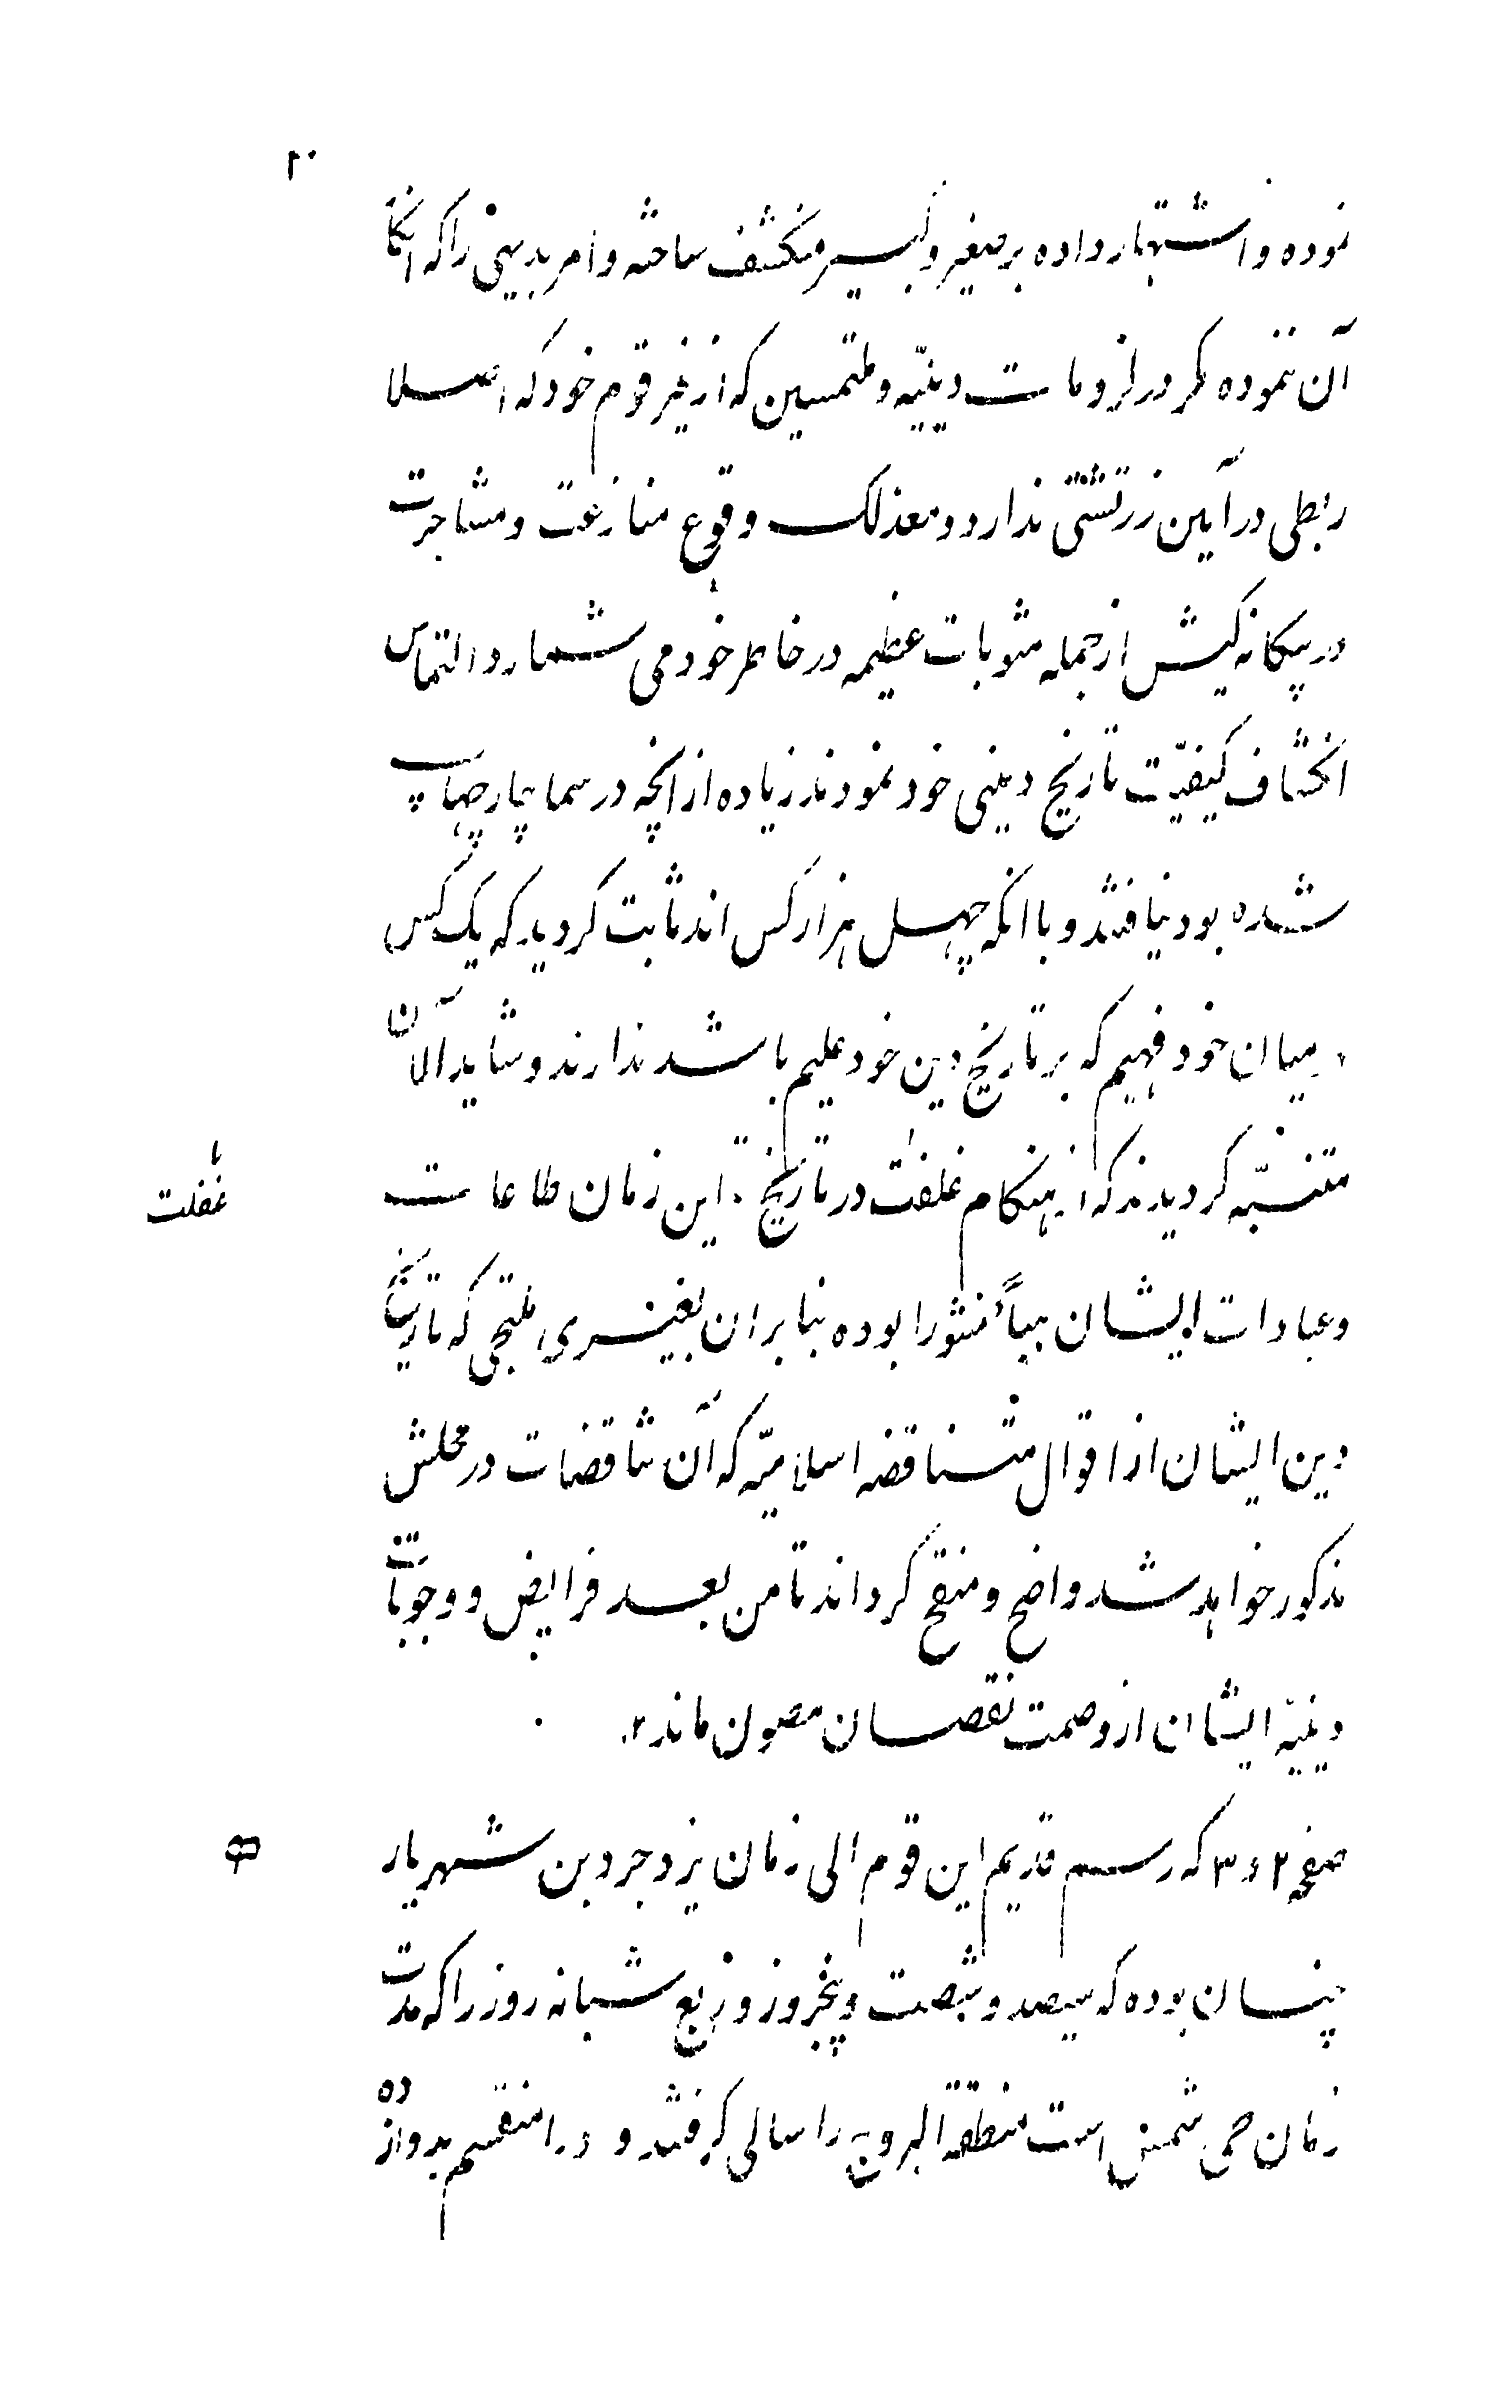 ۲۰
نموده و اشتهار داده بر صغیر و کبیر منکشف ساخته و امر بدیهی را که انکا
آن ننموده مگر در لزومات دینیّه و ملتمسین که از غیر قوم خود که اصلا
ربطی در آیین زرتشتی ندارد و معذلک وقوع منازعت و مشاجرت
در بیکانه کیش از جمله مثوبات عظیمه در خاطر خود می شمارد التماس
انکشاف کیفیّت تاریخ دینی خود نمودند زیاده از انچه در سما پمار چهاپ
شده بود نیافتند و با انکه چهل هزار کس اند ثابت کردید که یک کس
در میان خود فهیم که بر تاریخ دین خود علیم باشد ندارند و شاید الآن
متنبّه کردیدند که از هنکام غفلت در تاریخ تا این زمان طاعات
با غفلت
و عبادات ایشان هباءً منثورا بوده بنابران بغیری ملتجی که تاریخ
دین ایشان از اقوال متناقضه اسلامیّه که آن تناقضات در محلش
مذکور خواهد شد واضح و منقح کرداند تا من بعد فرایض و وجوبات
دینیّه ایشان از وصمت نقصان مصون ماند ۲.
صفحه ۲ و ۳ که رسم قدیم این قوم الی زمان یزدجرد بن شهریار
چنان بوده که سیصد و شصت و پنجروز و ربع شبانه روز را که مدت
زمان شمس است منطقة البروج را سالی کرفتند و را منقسم بدوازده